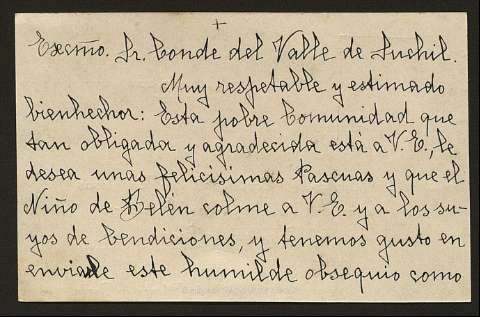 +
Excmo. Sr. Conde del Valle de Suchil.
Muy respetable y estimado
bienhechor: Esta pobre Comunidad que
tan obligada y agradecida está a V. E., le
desea unas felicísimas Pascuas y que el
Niño de Belén colme a V. E. y a los su-
yos de bendiciones, y tenemos gusto en
enviarle este humilde obsequio como